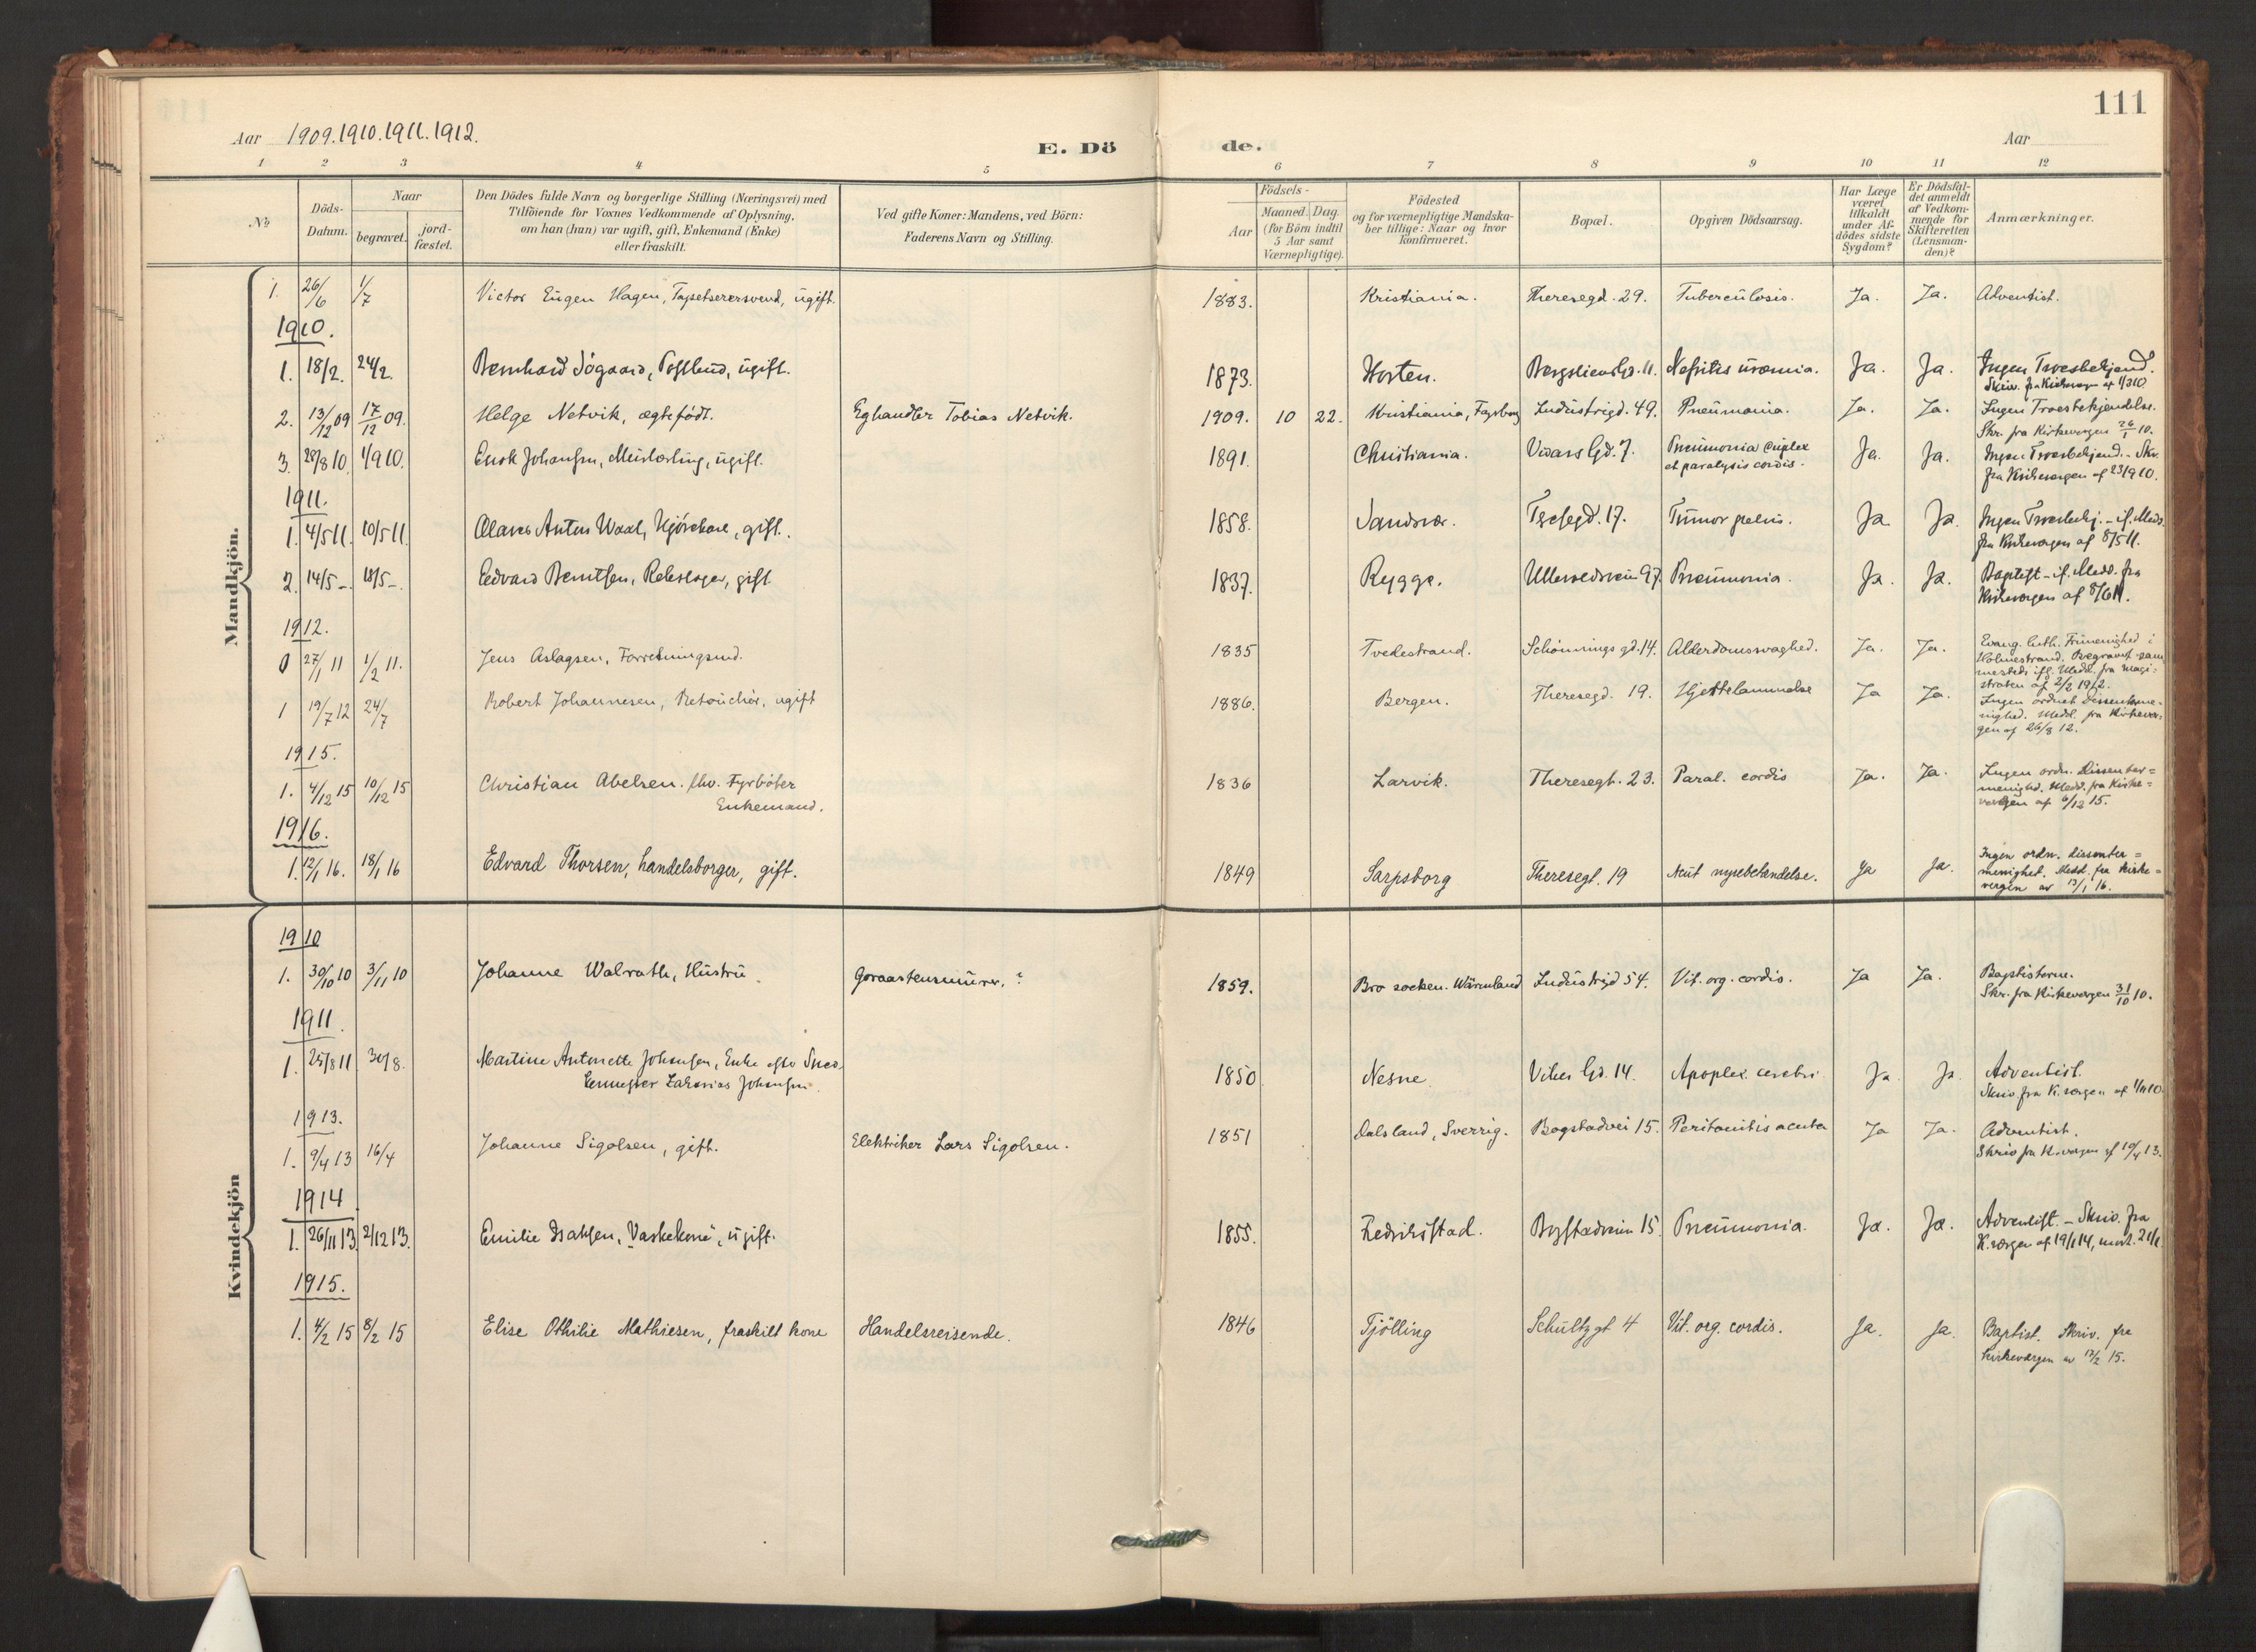 111
Aar 1909.1910.1911.1912.
E. Dö de.
Aar
1 2 3 4 5 6 7 8 9 10 11 12
No
Döds-
Datum.
Naar
begravet.
jord-
fæstet.
Den Dödes fulde Navn og borgerlige Stilling (Næringsvei) med
Tilföiende for Voxnes Vedkommende af Oplysning,
om han (hun) var ugift, gift, Enkemand (Enke)
eller fraskilt.
Ved gifte Koner: Mandens, ved Börn:
Faderens Navn og Stilling.
Födsels-
Aar
Maaned. Dag.
(for Börn indtil
5 Aar samt
Værnepligtige).
Födested
og for værnepligtige Mandska-
ber tillige: Naar og hvor
konfirmeret.
Bopæl.
Opgiven Dödsaarsag.
Har Læge
været
tilkaldt
under Af-
dödes sidste
Sygdom?
Er Dödsfal-
det anmeldt
af Vedkom-
mende for
Skifteretten
(Lensman-
den)?
Anmærkninger.
Mandkjön.
1. 26/6 1/7 Victor Eugen Hagen, Tapetserersvend, ugift. 1883. Kristiania. Theresegd. 29. Tuberculosis. Ja. Ja. Adventist.
1910.
1. 18/2. 24/2. Bernhard Sógaard, Postbud, ugift. 1873. Horten. Bergsliensgd. 11. Nefritis uræmia. Ja. Ja. Ingen Troesbekjend.
Skriv. fra Kirkevergen af 1/3 10
2. 13/12 09 17/12 09. Helge Netvik, ægtefödt. Eghandler Tobias Netvik. 1909. 10 22. Kristiania, Industrigd. 49. Pneumonia. Ja. Ja. Ingen Troesbekjendelse.
Skr. fra Kirkevergen 26/1 10.
3. 28/8 10. 1/9 10. Enok Johansen, ugift. 1891. Christiania. Vidars Gd. 7. Pneumonia duplex
et paralysis cordis. Ja. Ja. Ingen Troesbekjend. - Skr.
fra Kirkevergen af 23/9 10.
1911.
1. 4/5 11. 10/5 11. Olaves Anton Waal, Kjörekarl, gift. 1858. Sandsvær. 17. Tumor pelvis. Ja Ja. Ingen Troesbekj. - if. Medd.
fra Kirkevergen af 8/5 11.
2. 14/5 -. 18/5 -. Edvard Berntsen, Rebslager, gift 1837. Rygge. Ullevoldsveien 97. Pneumonia. Ja. Ja. Baptist - if. Medd. fra
Kirkevergen af 8/6 11.
1912.
0 27/1 11 1/2 11. Jens Aslagsen, Forretningsmd. 1835 Tvedestrand. Schönnings gd. 14. Alderdomsvaghed. Ja. Ja. Evang. luth. Frimenighed i
Holmestrand. Begravet sam-
mesteds ifl. Medd. fra Magi-
straten af 2/2 1912.
1 19/7 12 24/7 Robert Johannesen, Retouchör, ugift 1886. Bergen. Theresegd. 19. Hjertelammelse Ja Ja. Ingen ordnet Dissenterme-
nighed. Medd. fra Kirkever-
gen af 26/8 12.
1915.
1. 4/12 15 10/12 15 Christian Abelsen. fhv. Fyrböter
Enkemand. 1836 Larvik. Theresegt. 23. Paral. cordis Ja. Ja. Ingen ordn. Dissenter=
menighed. Medd. fra Kirke=
vergen af 6/12 15.
1916.
1. 12/1 16. 18/1 16 Edvard Thorsen, handelsborger, gift. 1849 Sarpsborg Theresegt. 19 Akut nyrebetændelse. Ja Ja. Ingen ordn. dissenter=
menighet. Medd. fra Kirke=
vergen av 13/1 16.
Kvindekjön
1910
1. 30/10 10 3/11 10 Johanne Walrath, Hustru. ? 1859. Bro socken. Wärmland Industrigd 54. Vit. org. cordis. Ja Ja. Baptisterne.
Skr. fra Kirkevergen 31/10 10.
1911.
1. 25/8 11 30/8. Martine Antonette Johansen, Enke efter Sned-
kermester Zakarias Johansen. 1850 Nesne. Vibes Gd. 14. Apoplex. cerebri Ja Ja Adventist.
Skriv fra K. vergen af
1913.
1. 9/4 13 16/4 Johanne Sigolsen, gift. Elektriker Lars Sigolsen. 1851 Dalsland, Sverrig. Bogstadvei 15. Peritonitis acuta Ja Ja. Adventist.
Skriv fra K. vergen af 19/4 13.
1914
1. 26/11 13. 2/12 13. Emilie Isaksen, Vaskekone, ugift. 1855. Fredrikstad. Bogstadveien 15. Pneumonia. Ja. Ja. Adventist. - Skriv. fra
K. vergen af 19/1 14, mott. 21/1.
1915.
1. 4/2 15 8/2 15 Elise Othilie Mathiesen, fraskilt kone Handelsreisende. 1846 Tjölling Schultzgt 4 Vit. org. cordis. Ja. Ja. Baptist. Skriv. fra
Kirkevergen av 12/2 15.